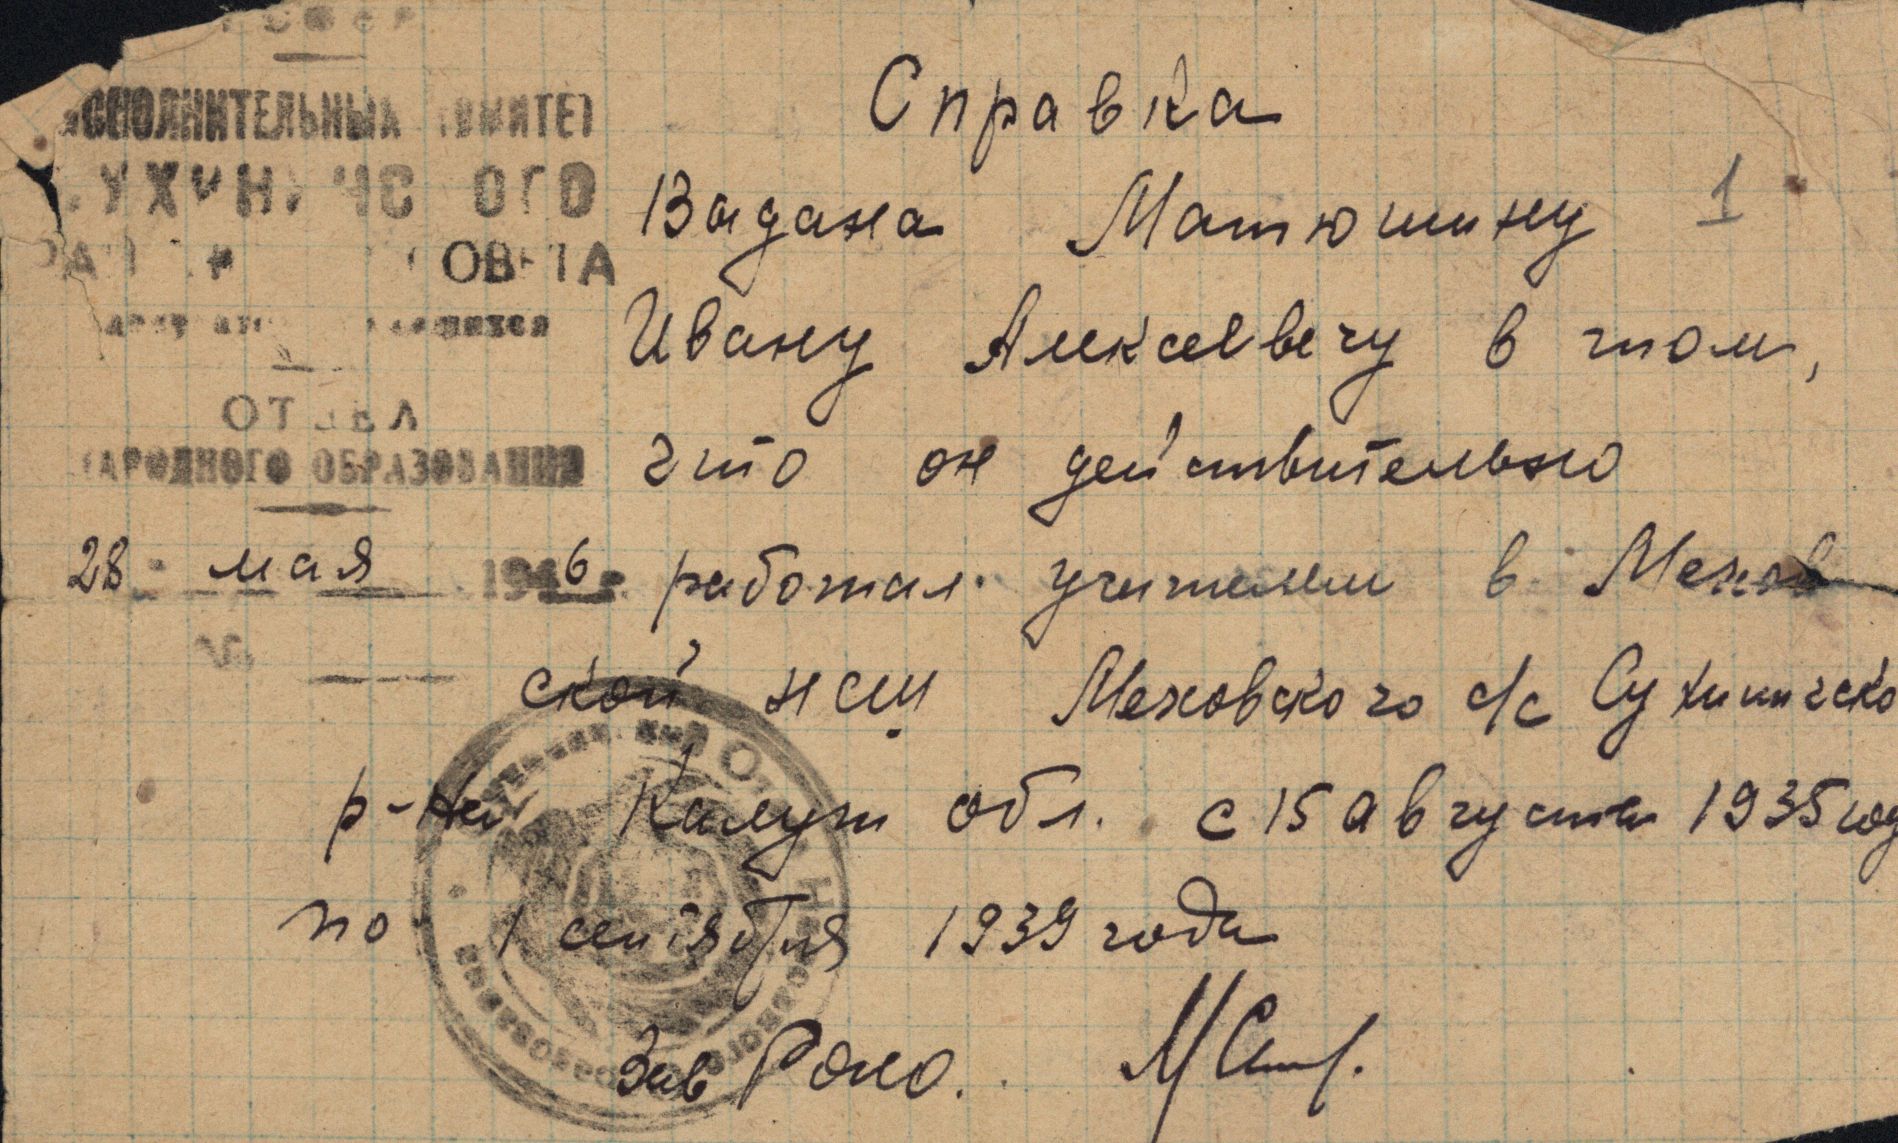 РСФСР
ИСПОЛНИТЕЛЬНЫЙ КОМИТЕТ
СУХИНИЧСКОГО
СОВЕТА
ОТДЕЛ
НАРОДНОГО ОБРАЗОВАНИЯ
28 мая 1946 г.
№
1
Справка
Выдана Матюшину
Ивану Алексеевичу в том,
что он действительно
работал учителем в Мехов
ской нсш Меховского с/с Сухиническо
р-на Калуж обл. с 15 августа 1935 год
по 1 сентября 1939 года
Зав Роно.